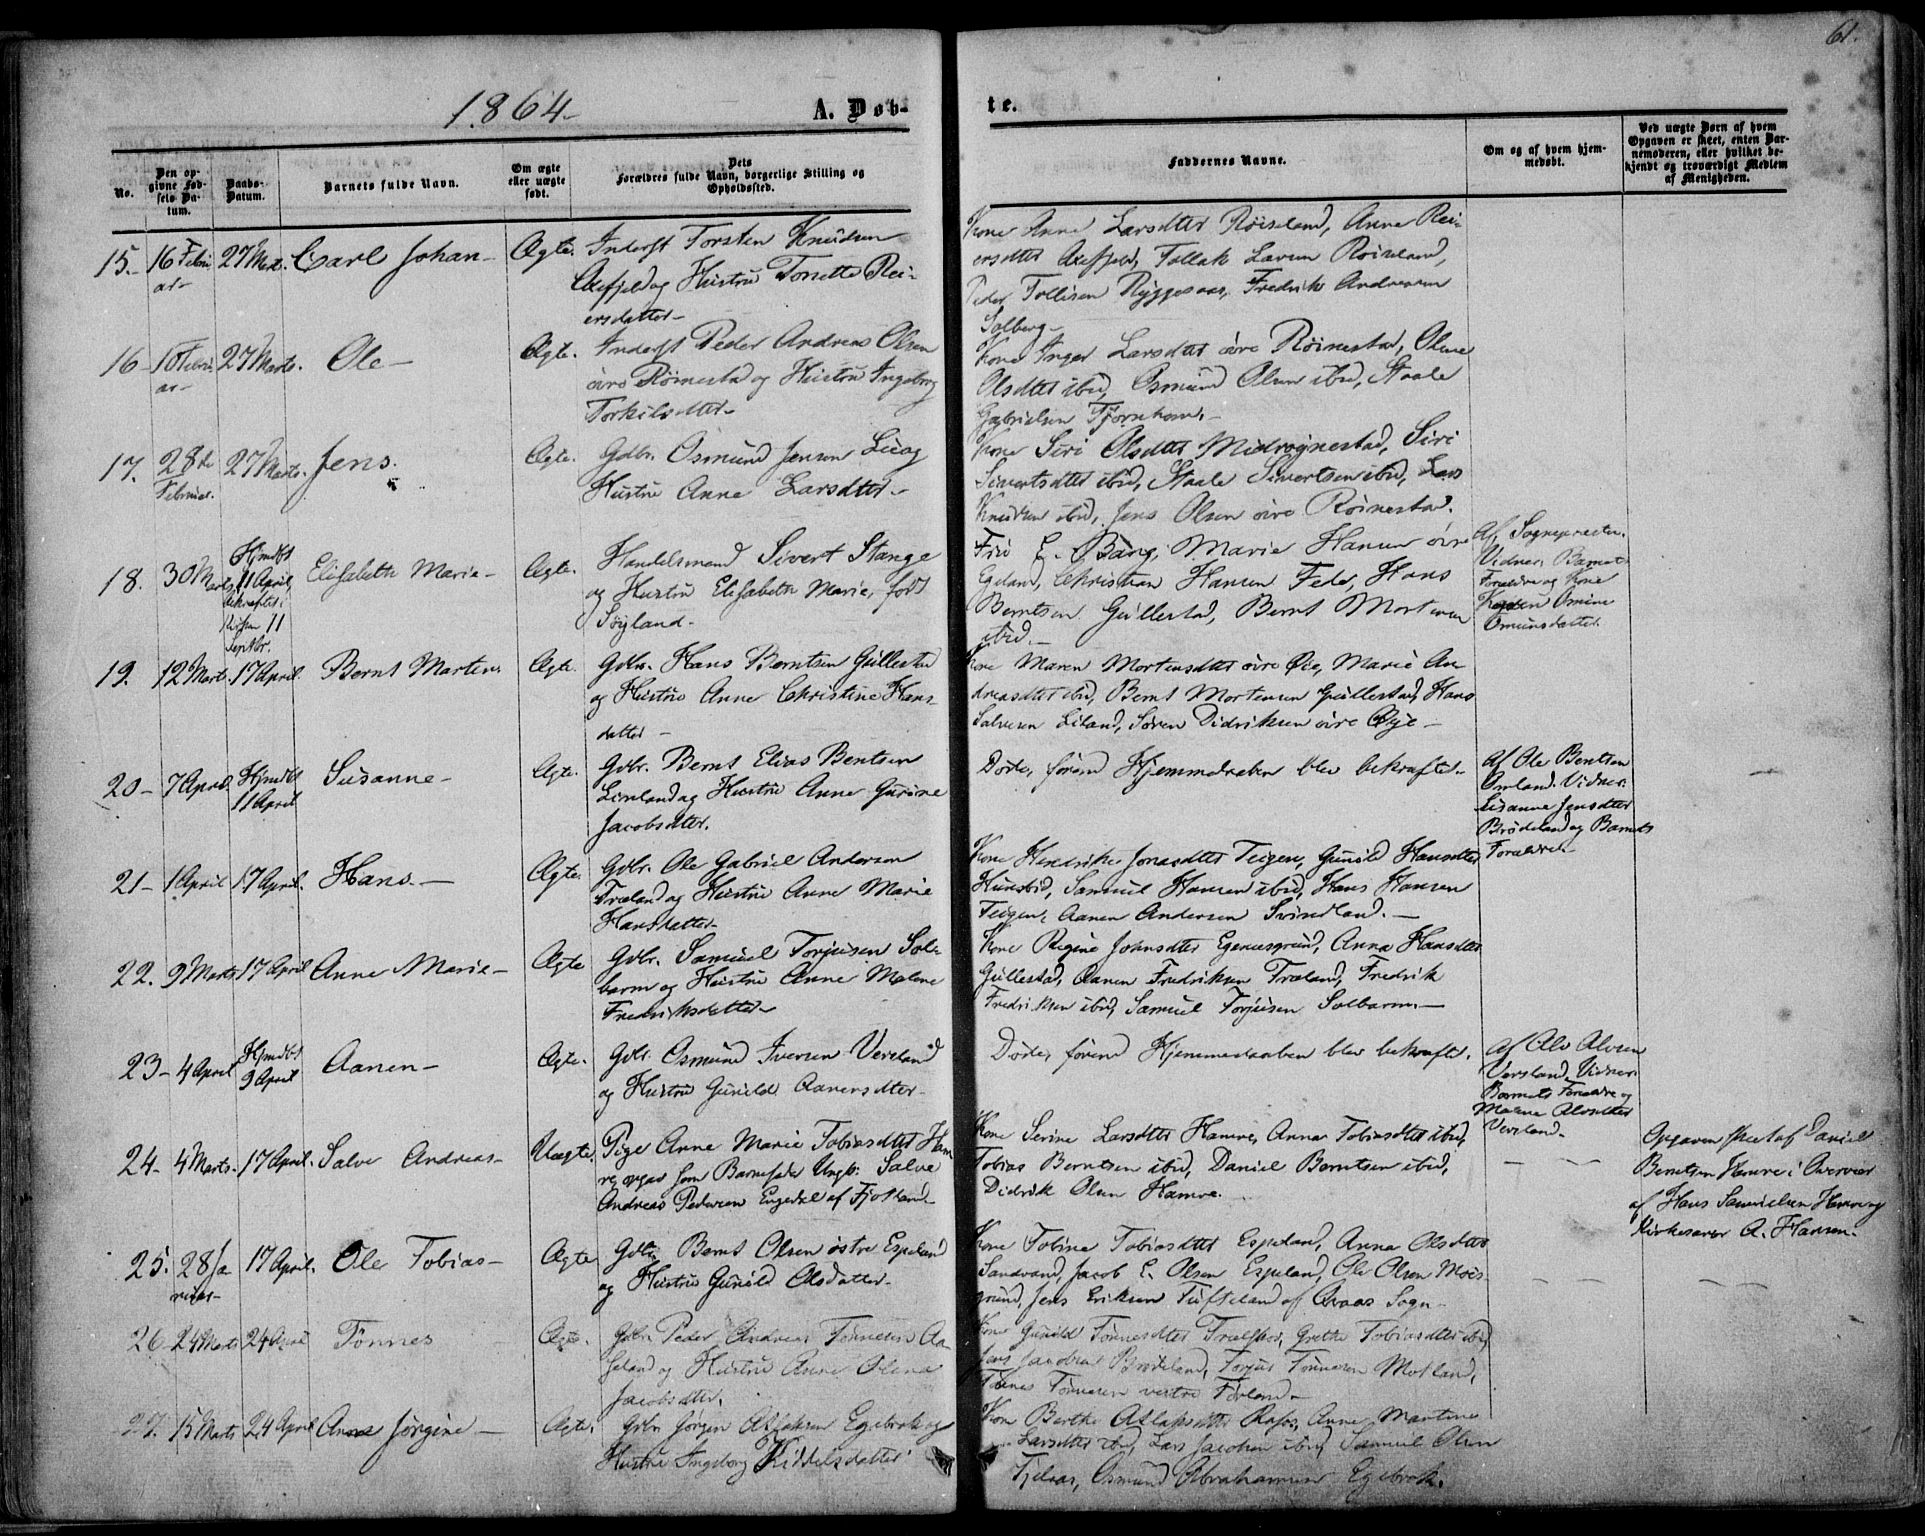 61.
1864-
A. Døb-
te.
No.
Den op-
givne Fød-
sels Da-
tum.
Daabs-
Datum.
Barnets fulde Navn.
Om ægte
eller uægte
født.
Dets
Forældres fulde Navn, borgerlige Stilling og
Opholdssted.
Faddernes Navne.
Om og af hvem hjem-
medøbt.
Ved uægte Børn af hvem
Opgaven er skeet, enten Bar-
nemoderen, eller hvilket be-
kjendt og troværdigt Medlem
af Menigheden.
15.- 16 Febru
ar-
27 Mart. Carl Johan- Ægte. Inderst Torsten Knudsen
Axefjeld og Hustru Tonette Rei-
ersdatter-
Kone Anne Larsdtter Røiseland, Anne Rei-
ersdtter Axefjeld, Tollak Larsen Røiseland,
Peder Tollisen Ryggesaas, Fredrik Andreasen
Solberg-
16- 10 Febru
ar-
27 Marts. Ole- Ægte. Inderst Peder Andreas Olsen
øvre Røinestad og Hustru Ingeborg
Torkilsdtter-
Kone Inger Larsdtter øvre Røinestad, Olene
Olsdtter ibid, Osmund Olsen ibid, Staale
Gabrielsen Tjørnhom.-
17. 28de
Februar.
27 Marts. Jens. Ægte. Gdbr. Osmund Jensen Lie og
Hustru Anne Larsdtter-
Kone Siri Olsdtter Midrøynestad, Siri
Sivertsdtter ibid, Staale Sivertsen ibid, Lars
Knudsen ibid, Jens Olsen øvre Røinestad.
18. 30 Marts,
Hjmdbt
11 April,
bekræftet i
Kirken 11
Septbr.
Elisabeth Marie- Ægte. Handelsmand Sivert Stange
og Hustru Elisabeth Marie, født
Søyland-
Fru E. Bang, Marie Hansen øvre
Egeland, Christian Hansen Feda, Hans
Berntsen Gullestad, Bernt Mortensen
ibid.-
Af Sognepresten.
Vidner: Barnets
Forældre og Kone
Omine
Omunsdatter.
19. 12 Mart. 17 April. Bernt Marten. Ægte. Gdbr. Hans Berntsen Gullestad
og Hustru Anne Christine Hans-
datter-
Kone Maren Mortensdtter øvre Øie, Marie An-
dreasdtter ibid, Bernt Mortensen Gullestad, Hans
Salvesen Eiland, Søren Didriksen øvre Øye-
20- 7 April.
Hjmdbt
11 April
Susanne- Ægte. Gdbr. Bernt Elias Bentsen
Limland og Hustru Anne Gurine
Jacobsdtter.
Døde, førend Hjemmedaaben blev bekræftet.
Af Ole Bentsen
Omland. Vidner:
Susanne Jensdtter
Brødeland og Barnets
Forældre-
21- 1 April 17 April. Hans.- Ægte. Gdbr. Ole Gabriel Andersen
Træland og Hustru Anne Marie
Hansdatter-
Kone Hendrikke Jonasdtter Teigen, Gunild Hansdtter
Hunsbid, Samuel Hansen ibid, Hans Hansen
Teigen, Aanen Andersen Svindland.-
22. 9 Marts 17 April Anne Marie- Ægte Gdbr. Samuel Torjusen Sol-
barm og Hustru Anne Malene
Fredriksdatter-
Kone Regine Johnsdtter Egenesgrund, Anna Hansdtter
Gullestad, Aanen Fredriksen Træland, Fredrik
Fredriksen ibid, Samuel Torjusen Solbarm.-
23- 4 April
Hjmdbt
9 April
Aanen- Ægte. Gdbr. Osmund Iversen Versland
og Hustru Gunild Aanensdtter-
Døde, førend Hjemmedaaben blev bekræftet.
Af Alv Alvsen
Versland. Vidner:
Barnets Forældre og
Malene Alvsdtter
Versland-
24- 4 Marts- 17 April. Salve Andreas- Uægte. Pige Anne Marie Tobiasdtter Ham
re, opgav som Barnefader Ungk: Salve
Andreas Pedersen Engedal af Fjotland-
Kone Serine Larsdtter Hamre, Anna Tobiasdtter ibid,
Tobias Berntsen ibid, Daniel Berntsen ibid,
Didrik Olsen Hamre.
Opgaven skeet af Daniel
Berntsen Hamre i Overvær
af Hans Samuelsen Hamre og
Kirkesanger A. Hansen-
25. 28 Ja
nuar-
17 April. Ole Tobias- Ægte Gdbr. Bernt Olsen østre Espeland
og Hustru Gunild Olsdatter-
Kone Tobine Tobiasdtter Espeland, Anna Olsdtter
Sandvand, Jacob E. Olsen Espeland, Ole Olsen Mois-
grund, Jens Eriksen Tufteland af Araas Sogn-
26- 24 Marts 24 April Tønnes Ægte. Gdbr. Peder Andreas Tønnesen Aa-
seland og Hustru Anne Olena
Jacobsdtter.
Kone Gunild Tønnesdtter Grethe Tobiasdtter ibid,
Jens Jacobsen Brødeland, Torjus Tønnesen Motland,
Tønnes Tønnesen vestre Førland-
27. 15 Marts 24 April Anne Jørgine- Ægte. Gdbr. Jørgen Atlaksen Egebrok og
Hustru Ingeborg Kiddelsdatter
Kone Berthe Atlaksdtter Røsos, Anne Martine
Larsdtter ibid, Lars Jacobsen ibid, Samuel Olsen
Fjelsaas, Osmund Abrahamsen Egebrok.